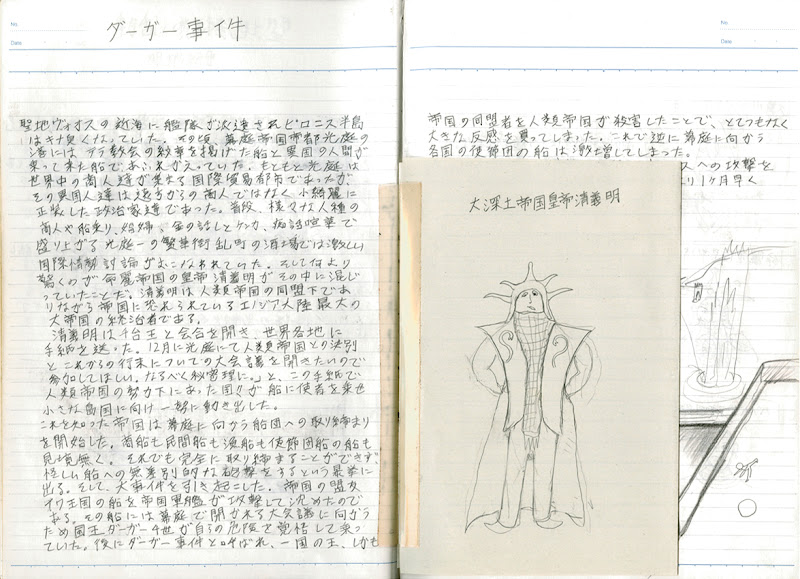 No.
Date
ダーガー事件
聖地ヴィオスの近海に艦隊が派遣されピロニス半島
はキナ臭くなっていた。その頃、幕庭帝国帝都光庭の
港には デラ教会の紋章を掲げた船と異国の人間が
乗って来た船であふれかえっていた。もともと光庭は
世界中の商人達が集まる国際貿易都市であったが、
その異国人達は遠方からの商人ではなく 小綺麗に
正装した政治家達であった。普段、様々な人種の
商人や船乗り、娼婦、金の話しとケンカ、痴話喧嘩で
盛り上がる光庭一の繁華街乱町の酒場では激しい
国際情勢討論がおこなわれていた。そして何より
驚くのが 帝国の皇帝 清義明がその中に混じ
っていたことだ。清義明は人類帝国の同盟下であ
りながら帝国に恐れられているエノジア大陸最大の
大帝国の統治者である。
清義明は千台王と会合を開き、世界各地に
手紙を送った。12月に光庭にて人類帝国との決別
とこれからの行末についての大会議を開きたいので
参加してほしい。なるべく秘密裡に。」と、この手紙で
人類帝国の努力下にあった国々が 船に使者を乗せ
小さな島国に向け 一斉に動き出した。
これを知った帝国は幕庭に向かう船団への取り締まり
を開始した。商船も民間船も漁船も使節団船の船も
見境無く。それでも完全に取り締まることができず
怪しい船への無差別的な砲撃をするという暴挙に
出る。そして、大事件を引き起こした。帝国の盟友
イワ王国の船を帝国軍艦が攻撃して沈めたので
ある。その船には幕庭で開かれる大会議に向かう
ため国王ダーガー4世が自らの危険を覚悟して乗っ
ていた。後にダーガー事件と呼ばれ、一国の王、しかも
No.
Date
帝国の同盟者を人類帝国が殺害したことで、とてつもなく
大きな反感を買ってしまった。これで逆に幕庭に向かう
各国の使節団の船は激増してしまった。
スへの攻撃を
より1ヶ月早く
大深土帝国皇帝清義明